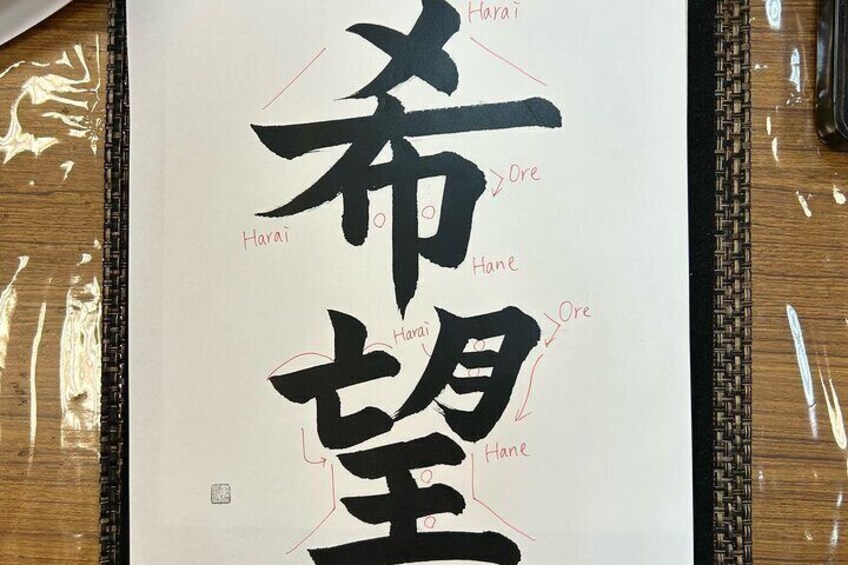 Harai
希
Ore
Harai
Hane
Ore
Harai
望
Hane